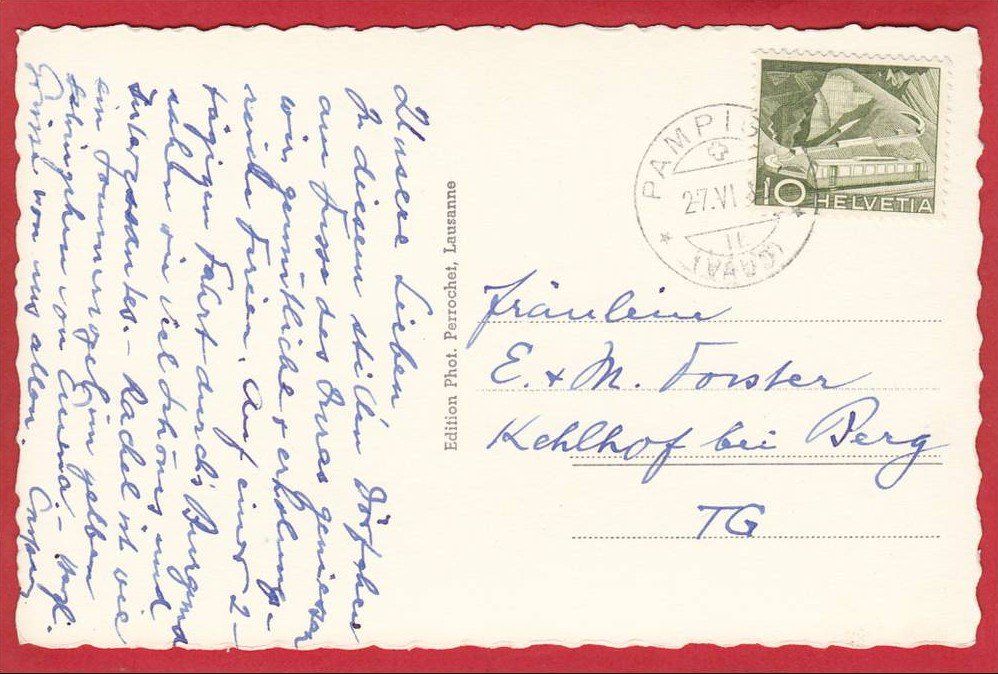 Unsere Lieben
In diesem stillen Dörfchen
am Fuss des Juras geniessen
wir gemütliche & erholungs-
reiche Ferien. Auf einer 2-
tägigen Fahrt durchs Burgund
sahen wir viel Schönes und
Interessantes. – Rachel ist wie
ein Sommervogel im gelben
von – Herzl.
Grüsse von uns allen.
Edition Phot. Perrochet, Lausanne
PAMPIG
27.VI
(VAUD)
10 HELVETIA
Fräulein
E. + M. Forster
Kehlhof bei Berg
TG